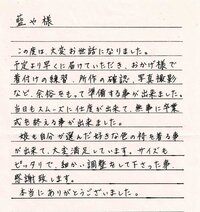 藍や様
この度は、大変お世話になりました。
予定より早くに届けていただき、おかげ様で
着付けの練習、所作の確認、写真撮影
など、余裕をもって準備する事が出来ました。
当日もスムーズに仕度が出来て、無事に卒業
式も終える事が出来ました。
娘も自分が選んだ好きな色の袴を着る事
が出来て、大変満足しています。サイズも
ピッタリで、細かい調整をして下さった事、
感謝致します。
本当にありがとうございました。